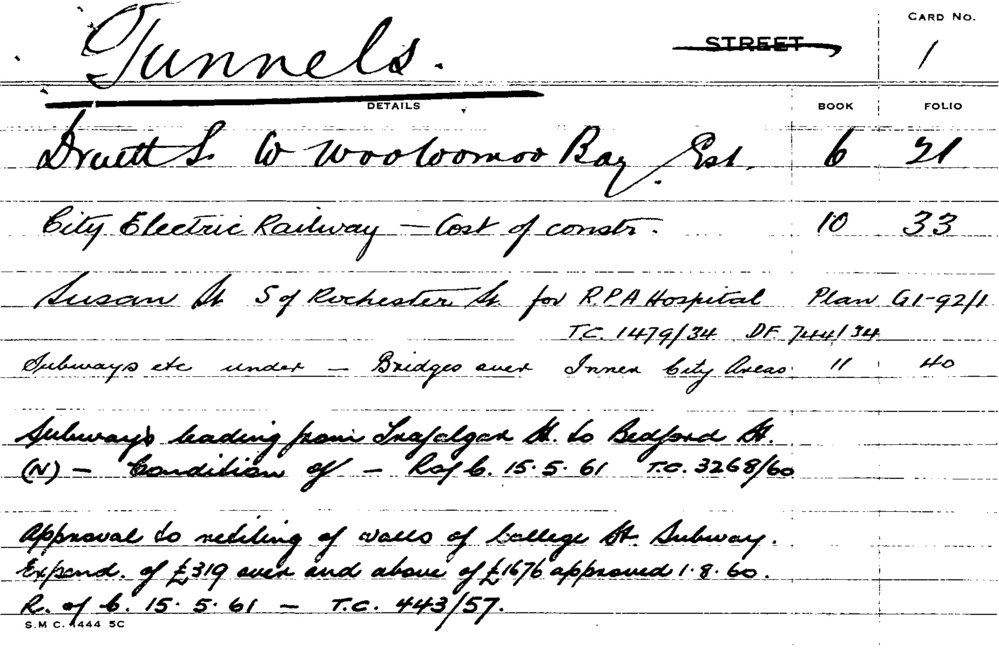 CARD No.
Tunnels. STREET 1
DETAILS BOOK FOLIO
Druitt St. to Wooloomoo Bay Est. 6 21
City Electric Railway – Cost of constr. 10 33
Susan St S of Rochester St. for R.P.A Hospital Plan G1-92/1
T.C. 1479/34 DF 744/34
Subways etc under – Bridges over Inner City Areas. 11 40
Subways leading from Trafalgar St. to Bedford St.
(N) – Condition of – R of C. 15.5.61 T.C. 3268/60
Approval to retiling of walls of College St. Subway.
Expend. of £319 over and above of £1676 approved 1.8.60.
R. of C. 15.5.61 – T.C. 443/57.
S.M.C. 1444 5C